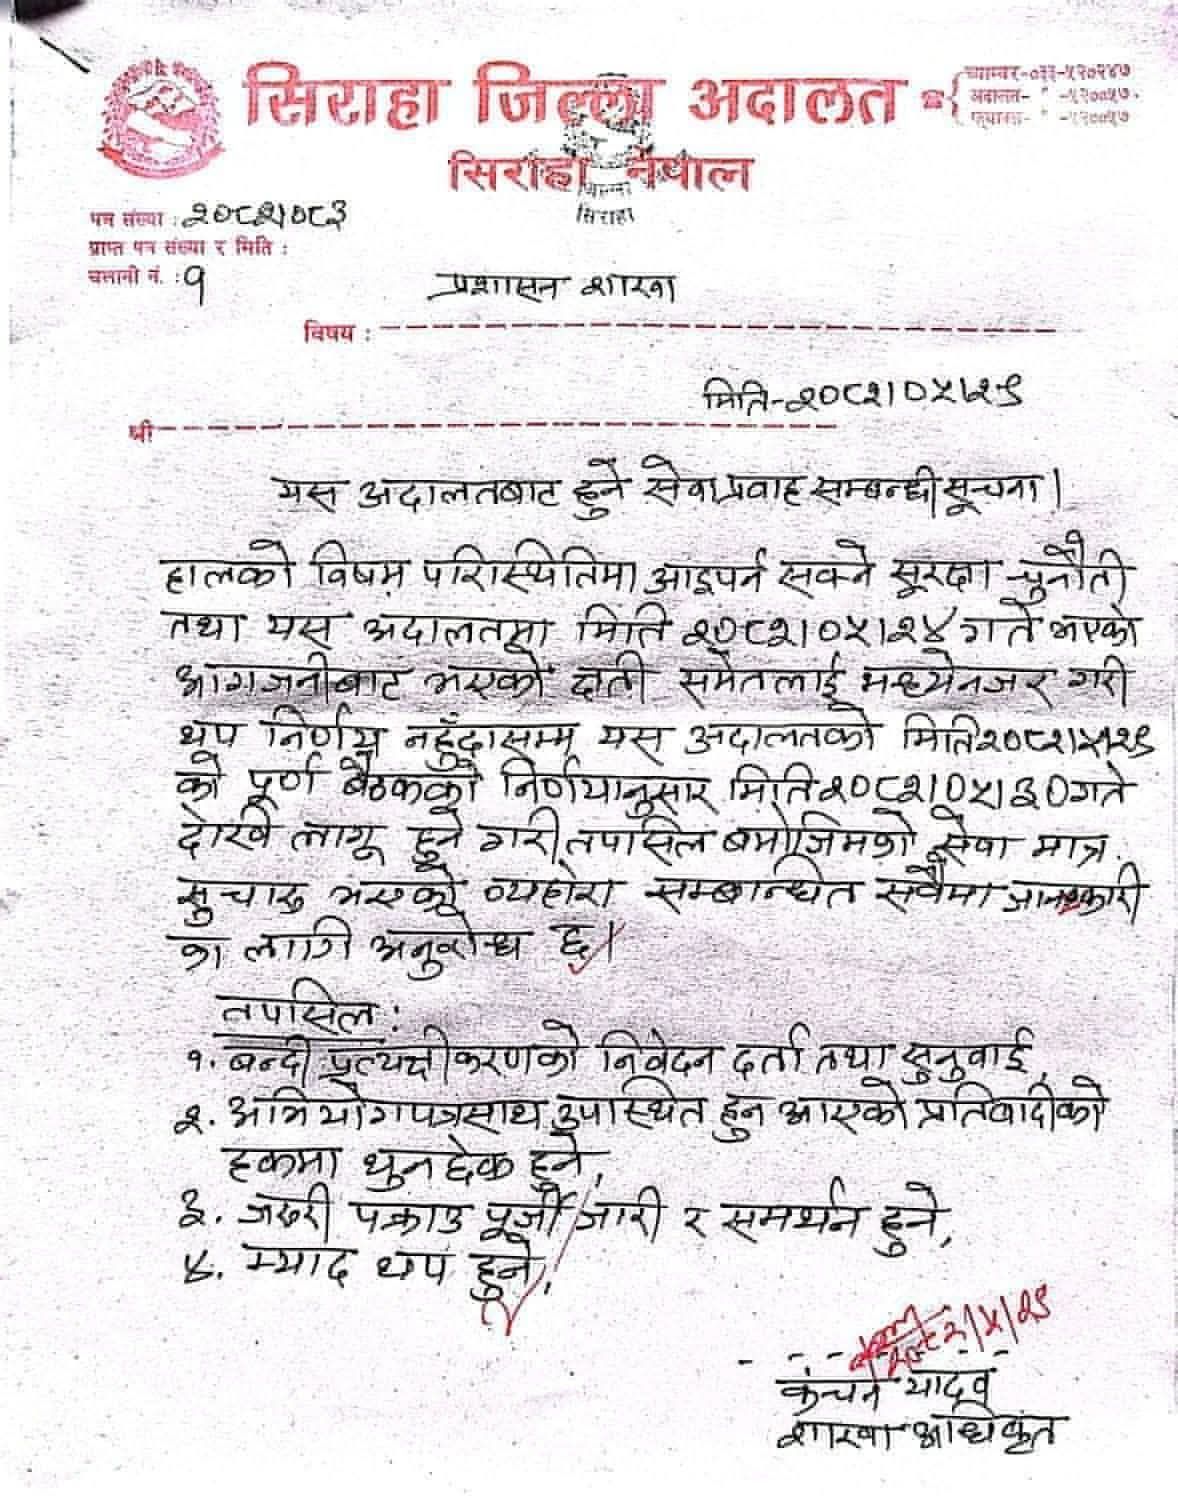 सिराहा जिल्ला अदालत
च्याम्बर-०३३-५२०२४७
अदालत- " -५२००५७
" -५२००५७
सिराहा नेपाल
जिल्ला
सिराहा
पत्र संख्या : २०८२।०८३
प्राप्त पत्र संख्या र मिति :
चलानी नं. : १
प्रशासन शाखा
विषय :
मिति-२०८२।०५।२९
श्री
यस अदालतबाट हुने सेवा प्रवाह सम्बन्धी सूचना।
हालको विषम परिस्थितिमा आइपर्न सक्ने सुरक्षा चुनौती
तथा यस अदालतमा मिति २०८२।०५।२४ गते भएको
आगजनीबाट भएको क्षती समेतलाई मध्येनजर गरी
थप निर्णय नहुँदासम्म यस अदालतको मिति २०८२।५।२९
को पूर्ण बैठकको निर्णयानुसार मिति २०८२।०५।३० गते
देखि लागू हुने गरी तपासिल बमोजिमको सेवा मात्र
सुचारु भएको व्यहोरा सम्बन्धित सवैमा जानकारी
का लागि अनुरोध छ।
तपसिल :
१. बन्दी प्रत्यक्षीकरणको निवेदन दर्ता तथा सुनुवाई,
२. अभियोगपत्रसाथ उपस्थित हुन आएको प्रतिवादीको
हकमा थुनछेक हुने,
३. जरुरी पक्राउ पूर्जी जारी र समर्थन हुने,
४. म्याद थप हुने,
२०८२/५/२९
कंचन यादव
शाखा अधिकृत